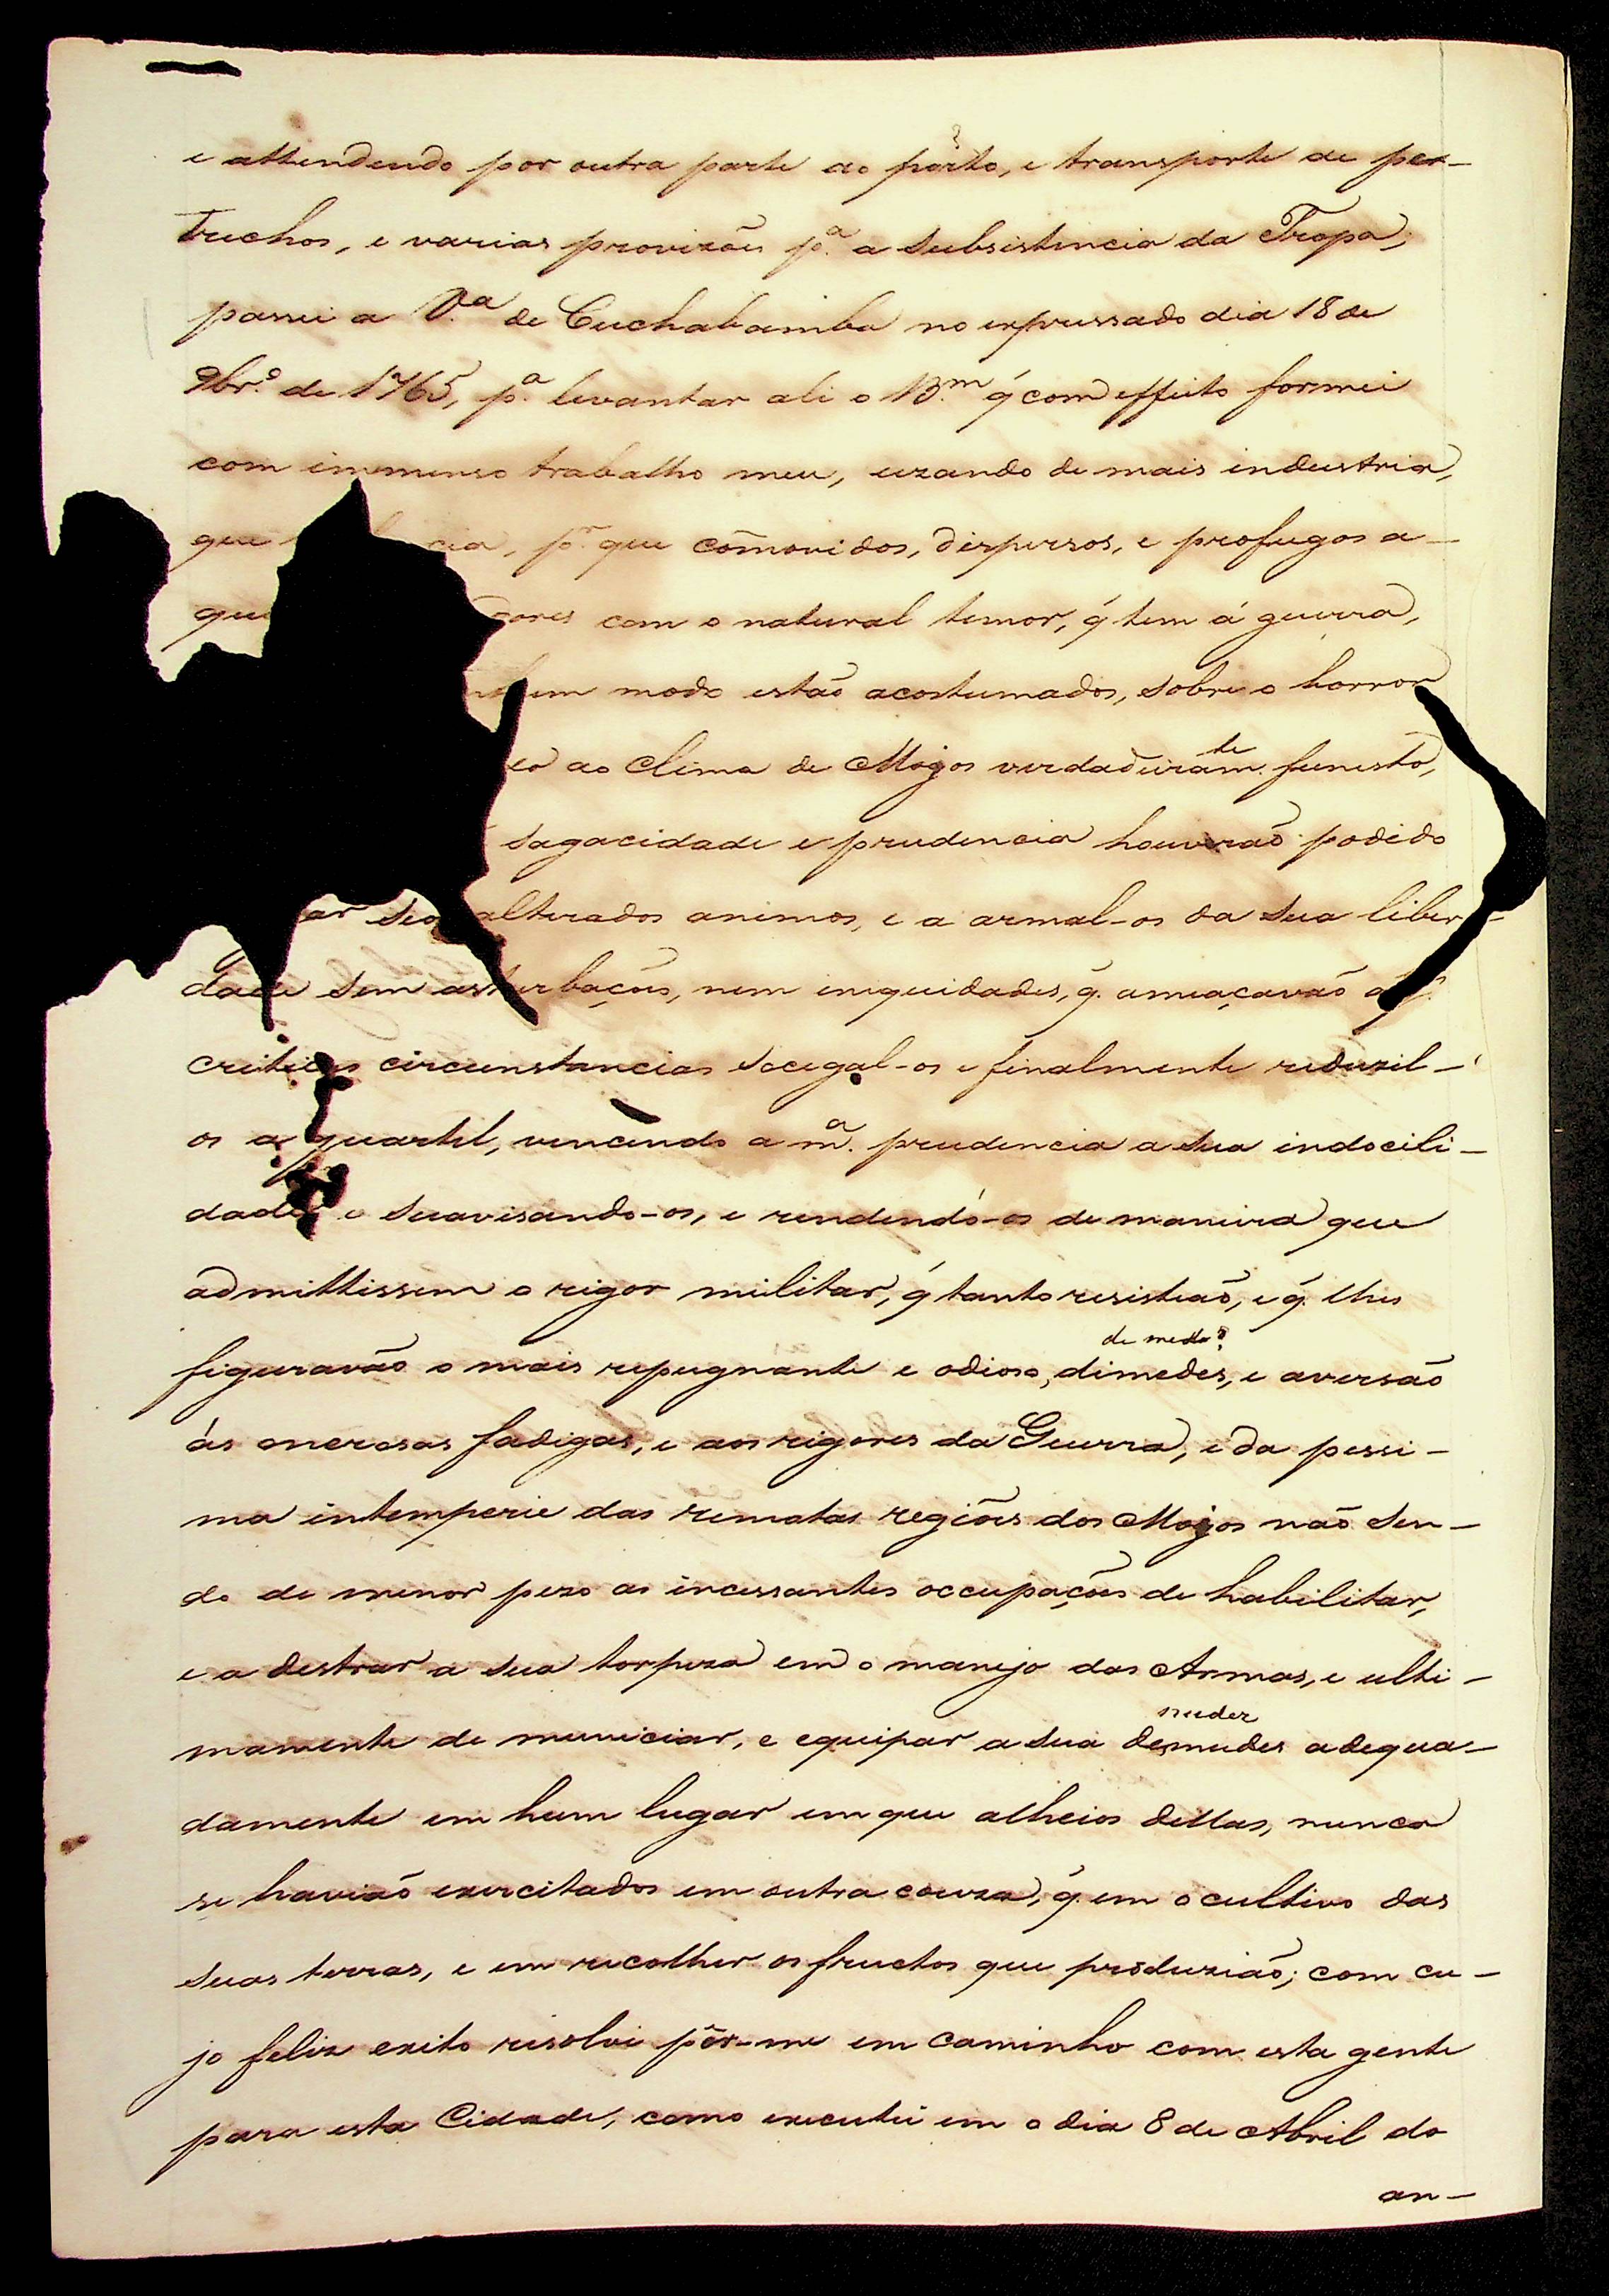 ?
e attendendo por outra parte ao porto, e transporte de per-
truchos, e varias provizões p.ª a subsistencia da Tropa,
passei a V.ª de Cuchabamba no expressado dia 18 de
9br.º de 1765, p.ª levantar ali o B.m q́ com effeito formei
com immenso trabalho meu, uzando de mais industria,
que cia, p.r que cõmovidos, dispersos, e profugos a-
que ores com o natural temor, q́ tem á guerra,
hum modo estão acostumados, sobre o horror
ao clima de Mojos verdadeiram.te funesto,
sagacidade e prudencia houverão podido
ar seos alterados animos, e a armal-os da sua liber-
dade sem as turbações, nem iniquidades, q́. ameaçavão
criticas circunstancias socegal-os e finalmente reduzil-
os a quartel, vencendo a m.ª prudencia a sua indocili-
dade e suavisando-os, e rendendó-os de maneira que
admittissem o rigor militar, q́ tanto resistião, e q́. lhes
de medo?
figuravão o mais repugnante e odioso, dimedes, e aversão
ás onerosas fadigas, e aos rigores da Guerra, e da pessi-
ma intemperie das remotas regiões dos Mojos não sen-
do de menor pezo as incessantes occupações de habilitar,
e a destrar a sua torpeza em o manejo das Armas, e ulti-
nudez
mamente de municiar, e equipar a sua desnudes adequa-
damente em hum lugar em que alheios dellas, nunca
se havião exercitados em outra couza, q́. em o cultivo das
suas terras, e em recolher os fructos que produzião; com cu-
jo feliz exito resolvi pôr-me em caminho com esta gente
para esta Cidade, como executei em o dia 8 de Abril do
an-